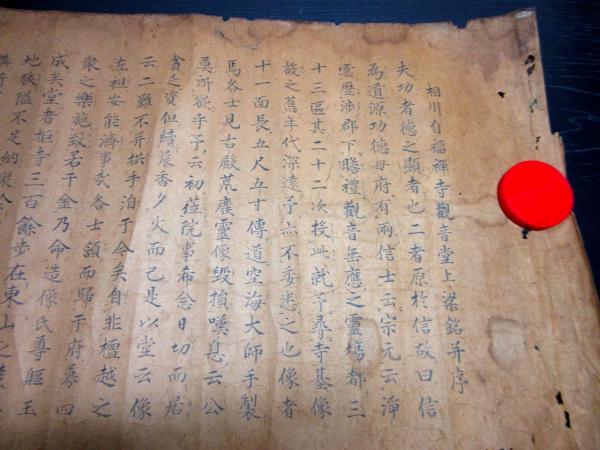 相川自福禅寺觀音堂上梁銘并序
夫功者德之顯者也二者原於信故曰信
為道源功德毋府有兩信士云宗元云淨
雲歷涉郡下瞻禮觀音無應之靈塲都三
十三區其二十二次挍此就予尋寺基像
設之舊年代深遠予亦不委悉之也像者
十一面長五尺五寸傳道空海大師手製
焉各士見古殿荒廢靈像毀損嘆息云公
莫所欲乎予云初莅院事希念日切而居
貪乏資但續晨香夕火而已是以堂云像
云二難不并拱手泊于今矣自非檀越之
左祖安能濟事哉各士頷而歸于府募四
衆之樂施致若千金乃命造像氏尊軀玉
成矣堂者柜寺三百餘歩在東山之
地狹隘不足納衆